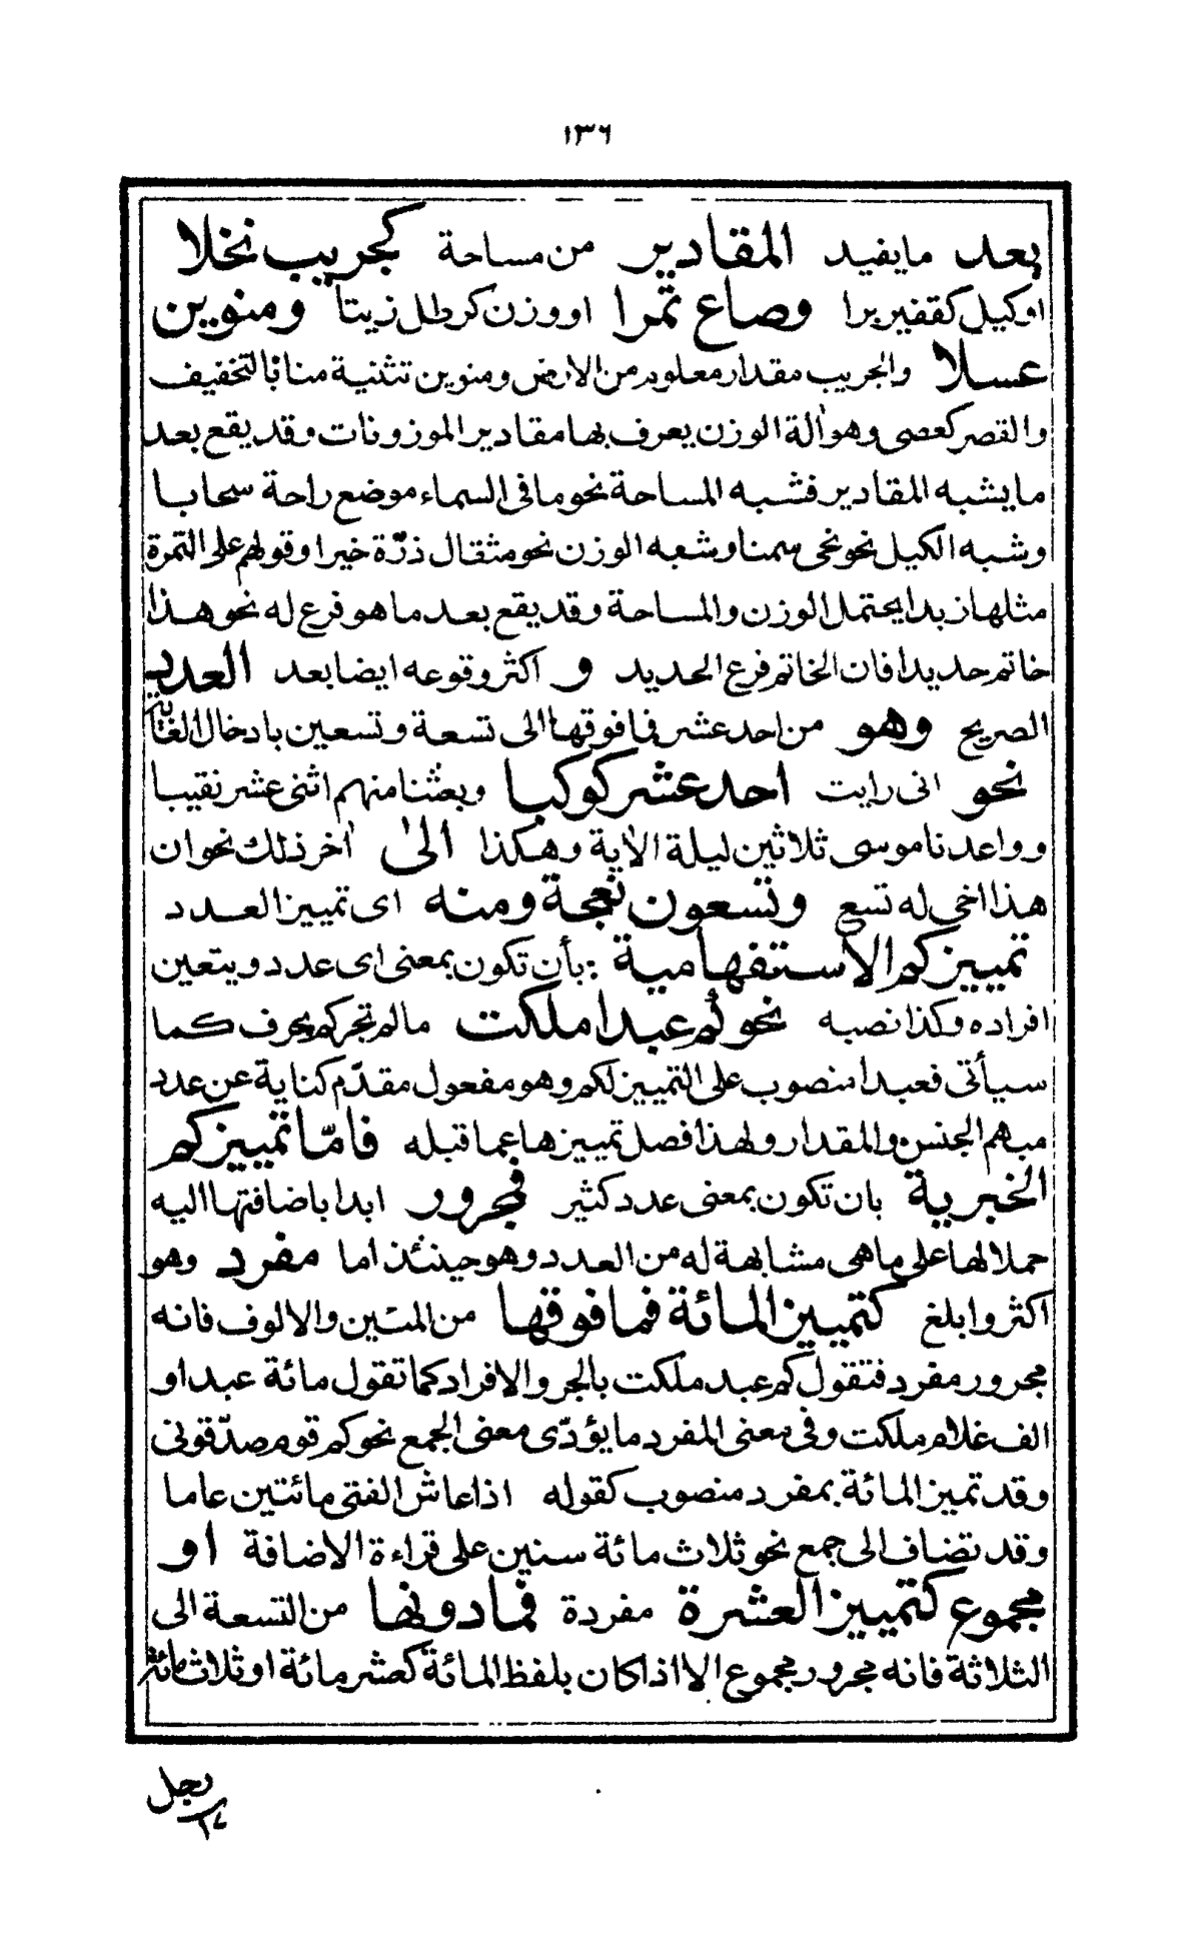 ١٣٦
بعد مايفيد المقادير من مساحة كجريب نخلا
اوكيل كقفيز برا وصاع تمرا او وزن كرطل زيتا ومنوين
عسلا والجريب مقدار معلوم من الارض ومنوين تثنية منا بالتخفيف
والقصر كعصى وهو اٰلة الوزن يعرف بها مقادير الموزونات وقد يقع بعد
ما يشبه المقادير فشبه المساحة نحو ما فى السماء موضع راحة سحابا
وشبه الكيل نحو نحى سمنا وشبه الوزن نحو مثقال ذرّة خيرا وقولهم على التمرة
مثلها زبدا يحتمل الوزن والمساحة وقد يقع بعد ما هو فرع له نحو هذا
خاتم حديدا فان الخاتم فرع الحديد و اكثر وقوعه ايضا بعد العدد
الصريح وهو من احد عشر فما فوقها الى تسعة وتسعين بادخال الغاية
نحو انى رايت احد عشر كوكبا وبعثنا منهم اثنى عشر نقيبا
وواعدنا موسى ثلاثين ليلة الاٰية وهكذا الىٰ اٰخر ذلك نحو ان
هذا اخى له تسع وتسعون نعجة ومنه اى تمييز العدد
تمييز كم الاستفهامية بأن تكون بمعنى اى عدد ويتعين
افراده وكذا نصبه نحو كم عبدا ملكت ما لم تجر كم بحرف كما
سيأتى فعبدا منصوب على التمييز لكم وهو مفعول مقدّم كناية عن عدد
مبهم الجنس والمقدار ولهذا فصل تمييزها عما قبله فامّا تمييز كم
الخبرية بان تكون بمعنى عدد كثير فمجرور ابدا باضافتها اليه
حملا لها على ما هى مشابهة له من العدد وهو حينئذ اما مفرد وهو
اكثر وابلغ كتمييز المائة فما فوقها من المئين والالوف فانه
مجرور مفرد فتقول كم عبد ملكت بالجر والافراد كما تقول مائة عبد او
الف غلام ملكت وفى معنى المفرد ما يؤدّى معنى الجمع نحو كم قوم صدّقونى
وقد تميز المائة بمفرد منصوب كقوله اذا عاش الفتى مائتين عاما
وقد تضاف الى جمع نحو ثلاث مائة سنين على قراءة الاضافة او
مجموع كتمييز العشرة مفردة فما دونها من التسعة الى
الثلاثة فانه مجرور مجموع الا اذا كان بلفظ المائة كعشر مائة او ثلاث مائة